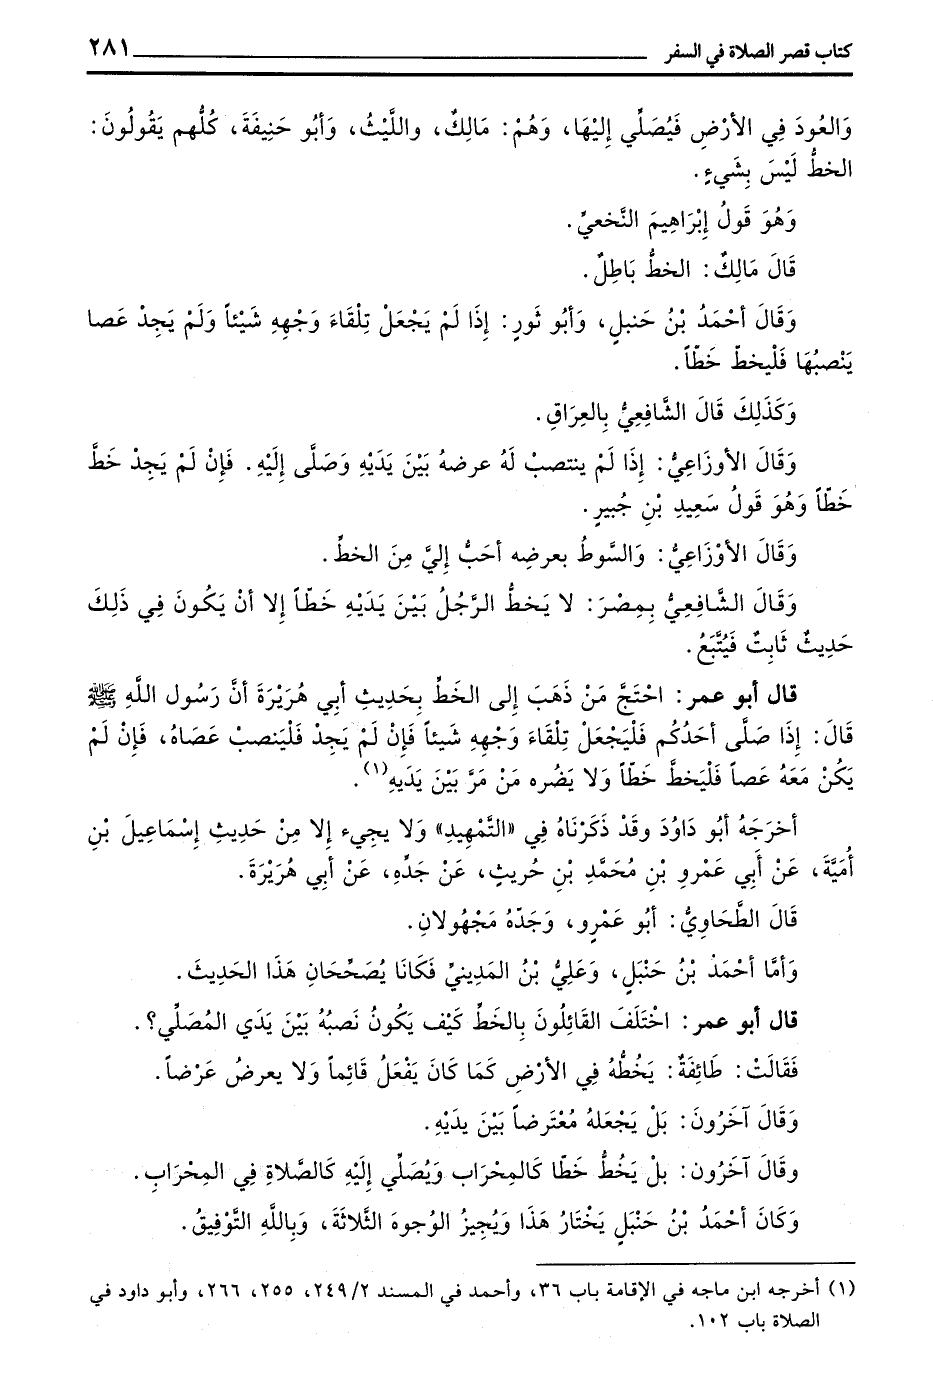 كتاب قصر الصلاة في السفر ٢٨١
وَالعُودَ فِي الأرْضِ فَيُصَلِّي إِلَيْهَا، وَهُمْ: مَالِكٌ، واللَّيْثُ، وَأبُو حَنِيفَةَ، كُلُّهم يَقُولُونَ:
الخطُّ لَيْسَ بِشَيءٍ.
وَهُوَ قَولُ إِبْرَاهِيمَ النَّخعيِّ.
قَالَ مَالِكٌ: الخطُّ بَاطِلٌ.
وَقَالَ أحْمَدُ بْنُ حَنبلٍ، وَأبُو ثَورٍ: إِذَا لَمْ يَجْعَلْ تِلْقَاءَ وَجْهِهِ شَيْئاً وَلَمْ يَجِدْ عَصا
يَنْصبُهَا فَلْيخطّ خَطّاً.
وَكَذَلِكَ قَالَ الشَّافِعِيُّ بِالعِرَاقِ.
وَقَالَ الأوزَاعِيُّ: إِذَا لَمْ ينتصبْ لَهُ عرضهُ بَيْنَ يَدَيْهِ وَصَلَّى إِلَيْهِ. فَإِنْ لَمْ يَجِدْ خَطَّ
خَطّاً وَهُوَ قَولُ سَعِيدِ بْنِ جُبيرٍ.
وَقَالَ الأوْزَاعِيُّ: وَالسَّوطُ بعرضِه أحَبُّ إِليَّ مِنَ الخطِّ.
وَقَالَ الشَّافِعِيُّ بِمِصْرَ: لا يَخطُّ الرَّجُلُ بَيْنَ يَدَيْهِ خَطّاً إلا أنْ يَكُونَ فِي ذَلِكَ
حَدِيثٌ ثَابِتٌ فَيُتَّبَعُ.
قال أبو عمر: احْتَجَّ مَنْ ذَهَبَ إِلى الخَطِّ بِحَدِيثِ أبِي هُرَيْرَةَ أنَّ رَسُول اللَّهِ ﷺ
قَالَ: إِذَا صَلَّى أحَدُكُم فَلْيَجْعَلْ تِلْقَاءَ وَجْهِهِ شَيئاً فَإِنْ لَمْ يَجِدْ فَلْيَنصبْ عَصَاهُ، فَإِنْ لَمْ
يَكُنْ مَعَهُ عَصاً فَلْيَخطَّ خَطّاً وَلا يَضُره مَنْ مَرَّ بَيْنَ يَدَيهِ(١).
أخرَجَهُ أبُو دَاوُدَ وقَدْ ذَكَرْنَاهُ فِي «التَّمْهِيدِ» وَلا يجِيء إِلا مِنْ حَدِيثِ إِسْمَاعِيلَ بْنِ
أُمَيَّةَ، عَنْ أَبِي عَمْرِو بْنِ مُحَمَّدِ بْنِ حُريثٍ، عَنْ جَدِّهِ، عَنْ أبِي هُرَيْرَةَ.
قَالَ الطَّحَاوِيُّ: أبُو عَمْرٍو، وَجَدّهُ مَجْهُولانِ.
وَأمَّا أحْمَدُ بْنُ حَنْبَلٍ، وَعَلِيُّ بْنُ المَدِينيِّ فَكَانَا يُصَحِّحَانِ هَذَا الحَدِيثَ.
قال أبو عمر: اخْتَلَفَ القَائِلُونَ بِالخَطِّ كَيْف يَكُونُ نَصبُهُ بَيْنَ يَدَي المُصَلِّي؟.
فَقَالَتْ: طَائِفَةٌ: يَخُطُّهُ فِي الأرْضِ كَمَا كَانَ يَفْعَلُ قَائِماً وَلا يعرضُ عَرْضاً.
وَقَالَ آخَرُونَ: بَلْ يَجْعَلهُ مُعْتَرضاً بَيْنَ يدَيْهِ.
وقَالَ آخَرُون: بلْ يَخُطُّ خَطّا كَالمِحْرَاب وَيُصَلِّي إِلَيْهِ كَالصَّلاةِ فِي المِحْرَابِ.
وَكَانَ أحْمَدُ بْنُ حَنبَلٍ يَخْتَارُ هَذَا وَيُجِيزُ الوُجوهَ الثَّلاثَةَ، وَبِاللَّهِ التَّوْفِيقُ.
(١) أخرجه ابن ماجه في الإقامة باب ٣٦، وأحمد في المسند ٢٤٩/٢، ٢٥٥، ٢٦٦، وأبو داود في
الصلاة باب ١٠٢.